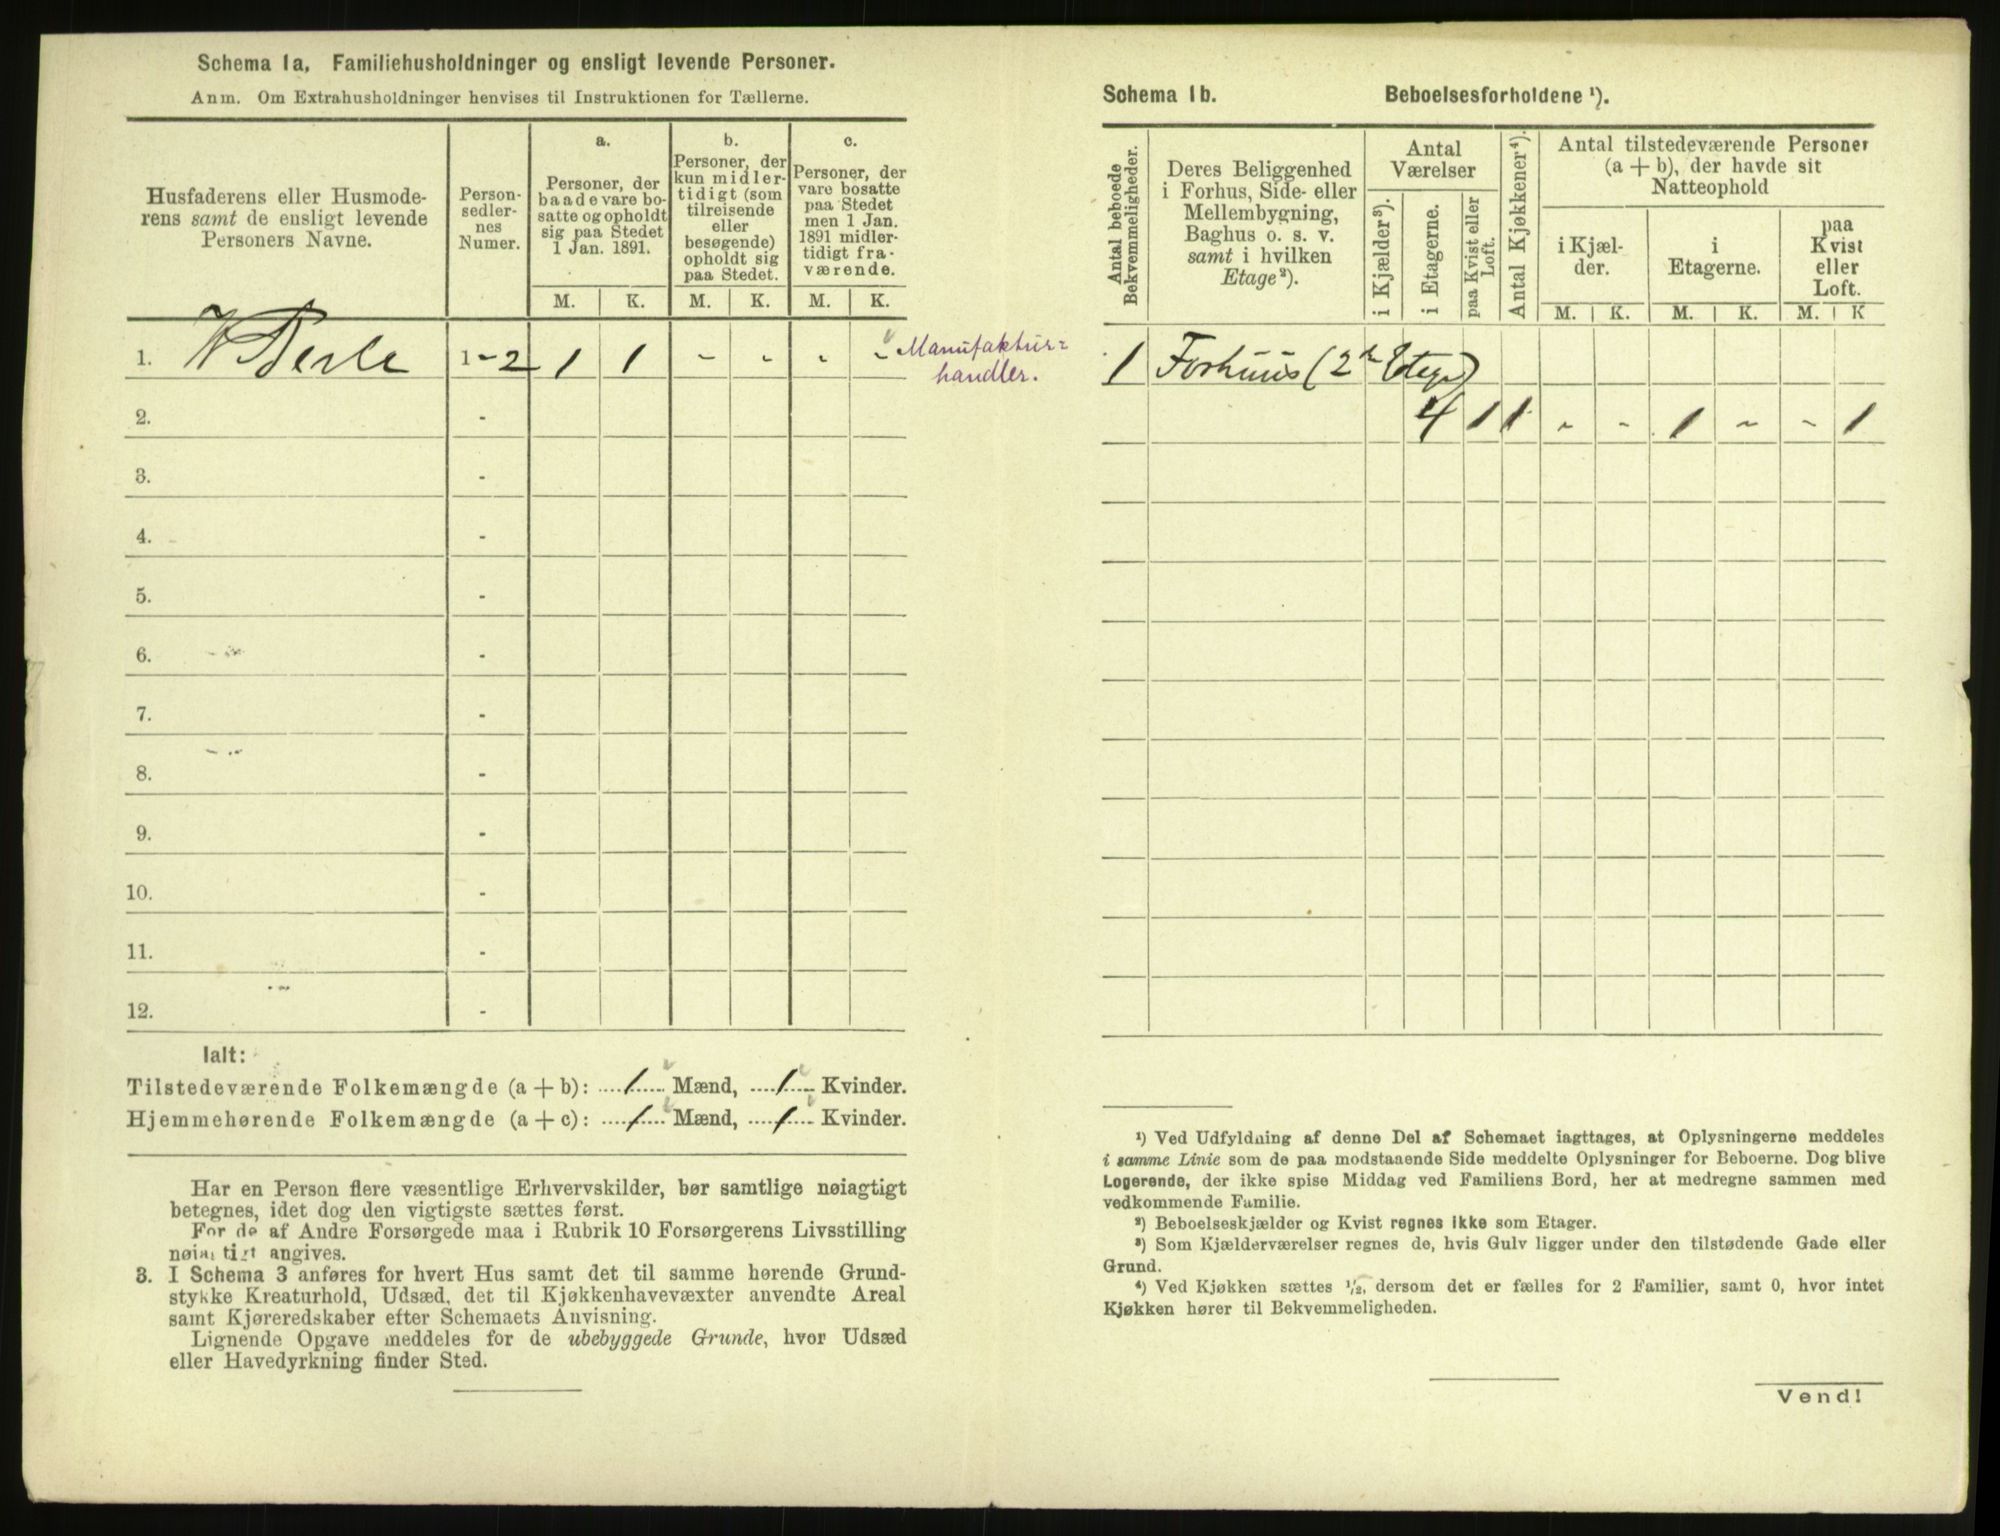 Schema 1a, Familiehusholdninger og ensligt levende Personer.
Anm. Om Extrahusholdninger henvises til Instruktionen for Tællerne.
Husfaderens eller Husmode-
rens samt de ensligt levende
Personers Navne.
Person-
sedler-
nes
Numer.
a.
Personer, der
baade vare bo-
satte og opholdt
sig paa Stedet
1 Jan. 1891.
b.
Personer, der
kun midler-
tidigt (som
tilreisende
eller
besøgende)
opholdt sig
paa Stedet.
c.
Personer, der
vare bosatte
paa Stedet
men 1 Jan.
1891 midler-
tidigt fra-
værende.
M. K. M. K. M. K.
1. W Berle 1 - 2 1 1 - - - - Manufaktur=
handler.
2. -
3. -
4. -
5. -
6. -
7. -
8. -
9. -
10. -
11. -
12. -
Ialt:
Tilstedeværende Folkemængde (a + b): 1 Mænd, 1 Kvinder.
Hjemmehørende Folkemængde (a + c): 1 Mænd, 1 Kvinder.
Har en Person flere væsentlige Erhvervskilder, bør samtlige nøiagtigt
betegnes, idet dog den vigtigste sættes først.
For de af Andre Forsørgede maa i Rubrik 10 Forsørgerens Livsstilling
nøiagtigt angives.
3. I Schema 3 anføres for hvert Hus samt det til samme hørende Grund-
stykke Kreaturhold, Udsæd, det til Kjøkkenhavevæxter anvendte Areal
samt Kjøreredskaber efter Schemaets Anvisning.
Lignende Opgave meddeles for de ubebyggede Grunde, hvor Udsæd
eller Havedyrkning finder Sted.
Schema 1b. Beboelsesforholdene ¹).
Antal beboede
Bekvemmeligheder.
Deres Beliggenhed
i Forhus, Side- eller
Mellembygning,
Baghus o. s. v.
samt i hvilken
Etage²).
Antal
Værelser
i Kjælder³).
i Etagerne.
paa Kvist eller
Loft.
Antal Kjøkkener⁴).
Antal tilstedeværende Personer
(a + b), der havde sit
Natteophold
i Kjæl-
der.
i
Etagerne.
paa
Kvist
eller
Loft.
M. K. M. K. M. K
1 Forhuus (2den Etage)
4 1 1 - - 1 - - 1
¹) Ved Udfyldning af denne Del af Schemaet iagttages, at Oplysningerne meddeles
i samme Linie som de paa modstaaende Side meddelte Oplysninger for Beboerne. Dog blive
Logerende, der ikke spise Middag ved Familiens Bord, her at medregne sammen med
vedkommende Familie.
²) Beboelseskjælder og Kvist regnes ikke som Etager.
³) Som Kjælderværelser regnes de, hvis Gulv ligger under den tilstødende Gade eller
Grund.
⁴) Ved Kjøkken sættes ½, dersom det er fælles for 2 Familier, samt 0, hvor intet
Kjøkken hører til Bekvemmeligheden.
Vend!